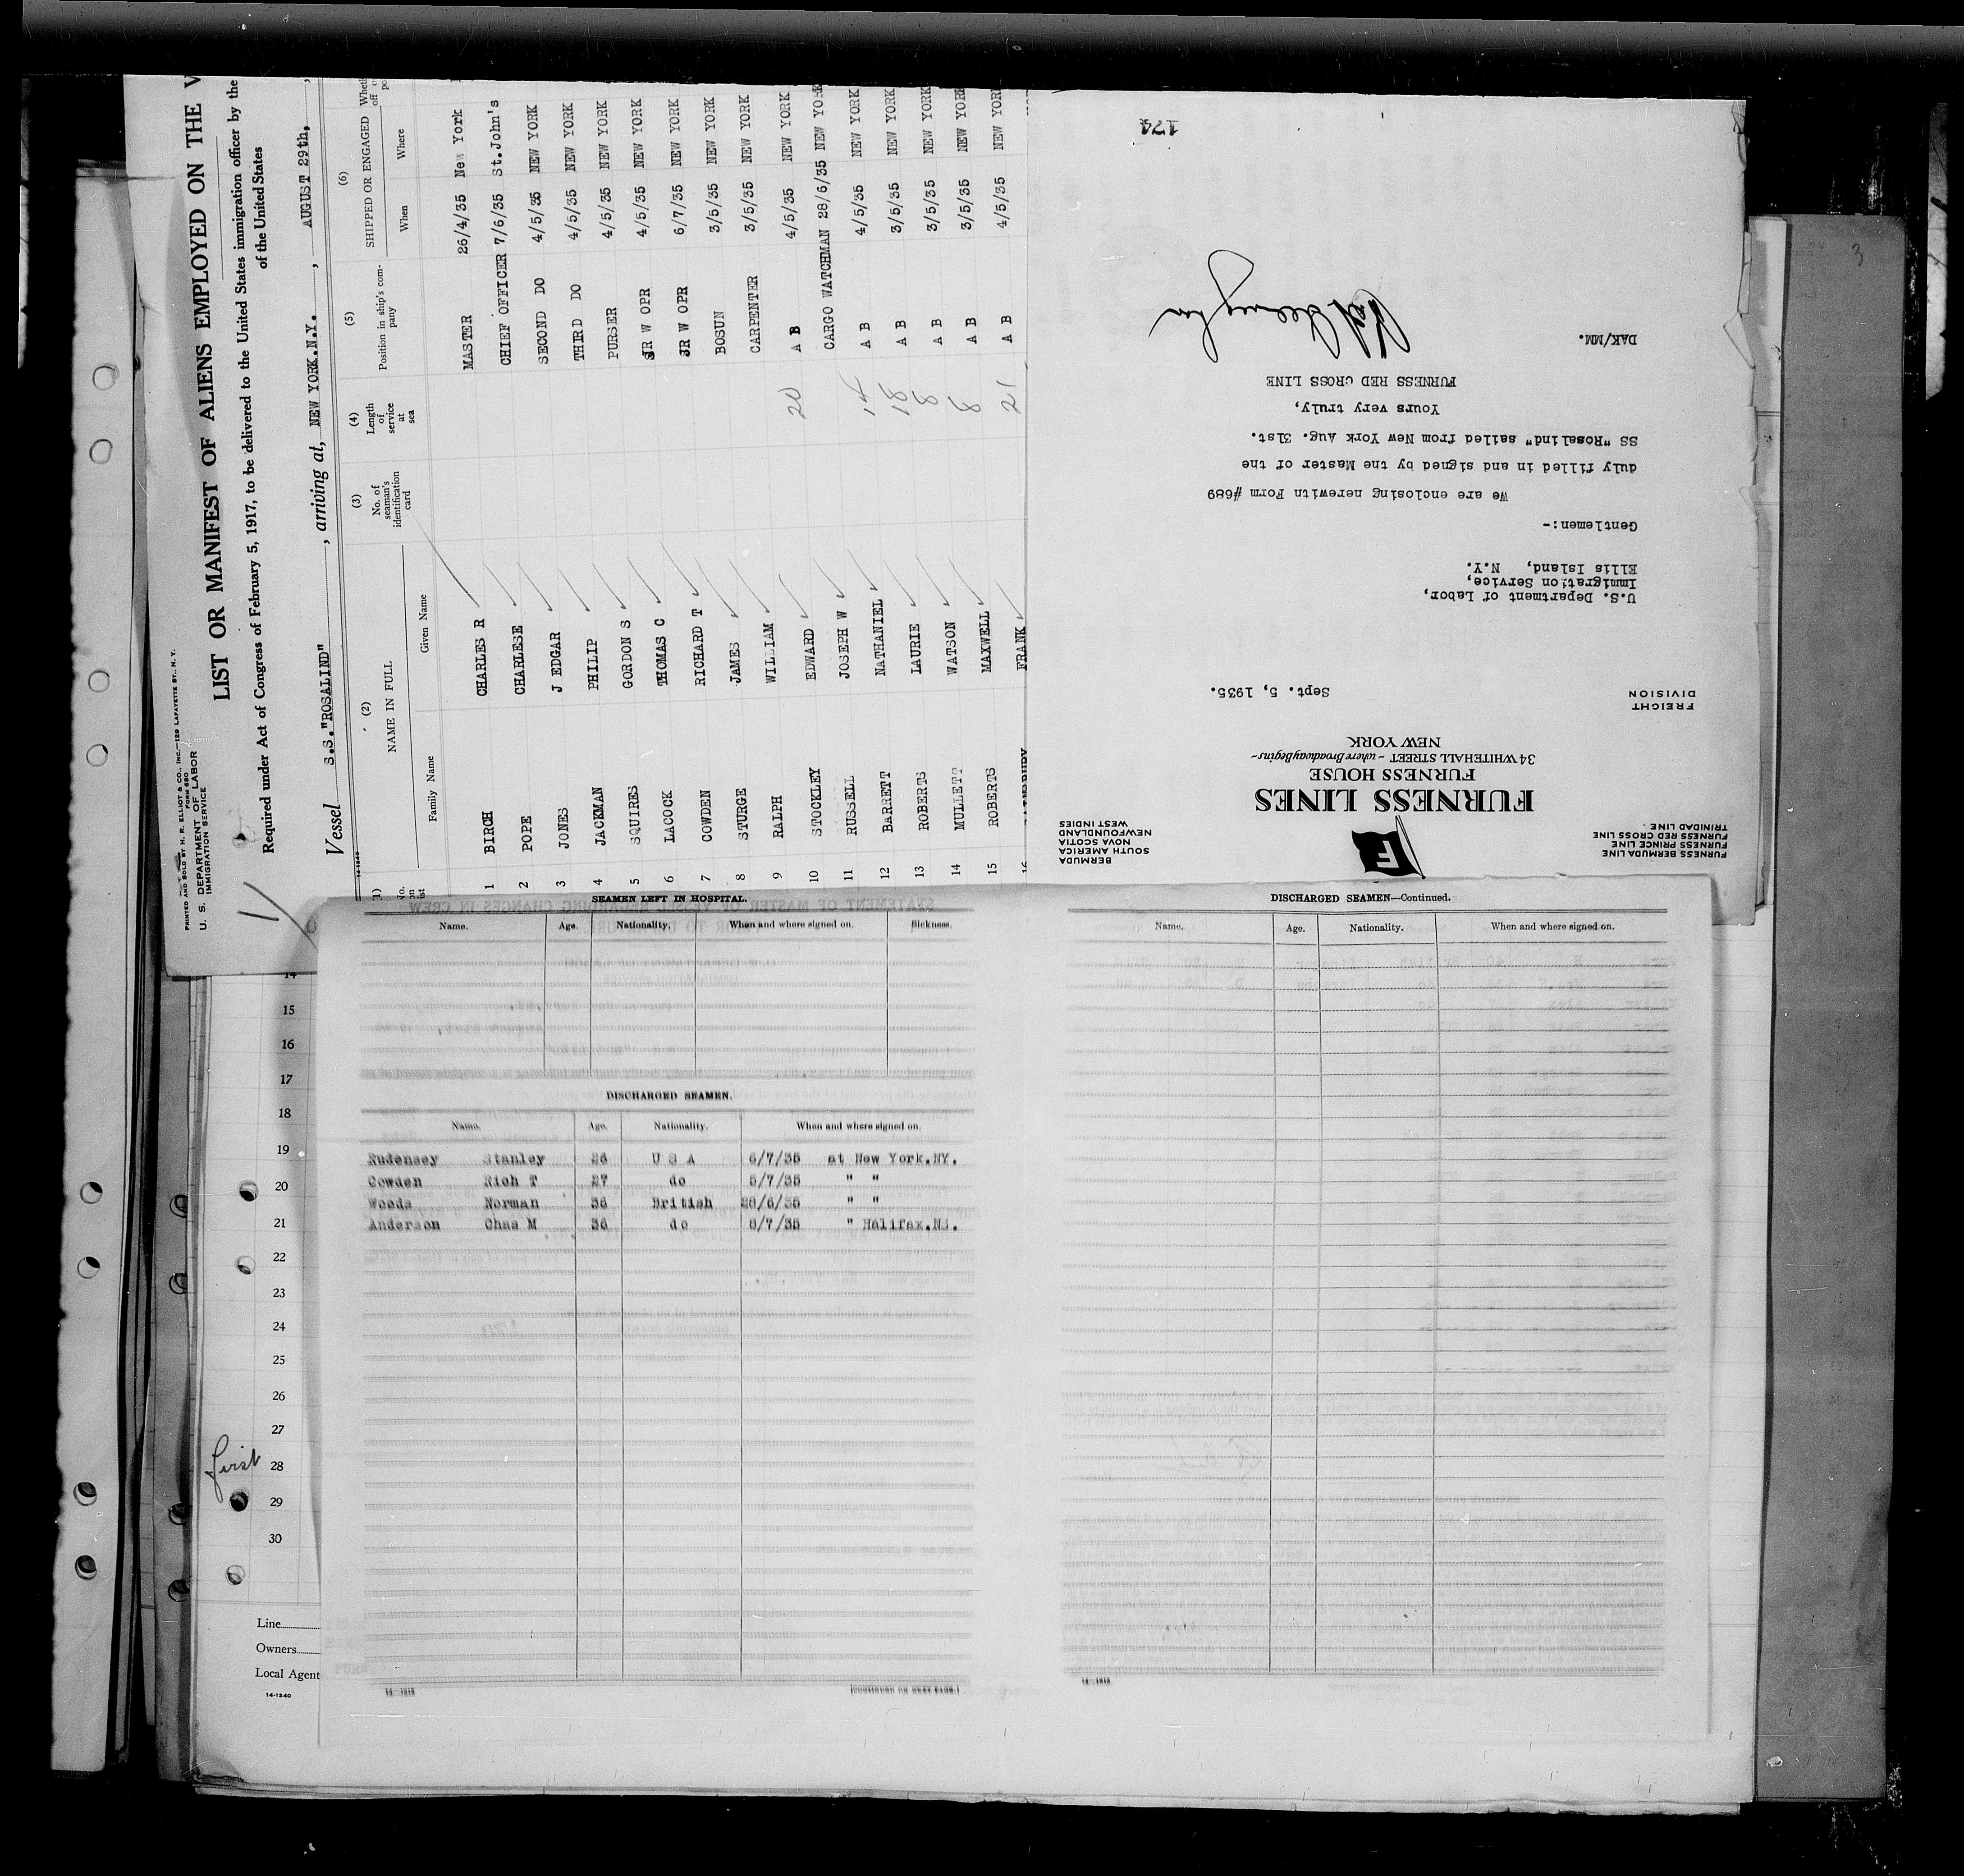 PRINTED AND SOLD BY H. R. ELLIOT & CO., INC.—129 LAFAYETTE ST., N. Y.
FORM 680
U. S. DEPARTMENT OF LABOR
IMMIGRATION SERVICE
LIST OR MANIFEST OF ALIENS EMPLOYED ON THE V
Required under Act of Congress of February 5, 1917, to be delivered to the United States immigration officer by the
of the United States
Vessel S.S."ROSALIND", arriving at, NEW YORK.N.Y., AUGUST 29th,
14-1240
(1) (2) (3) (4) (5) (6)
No. on list NAME IN FULL No. of seaman's identification card Length of service at sea Position in ship's company SHIPPED OR ENGAGED
Family Name Given Name When Where
1 BIRCH CHARLES R MASTER 26/4/35 New York
2 POPE CHARLESE CHIEF OFFICER 7/6/35 St.John's
3 JONES J EDGAR SECOND DO 4/5/35 NEW YORK
4 JACKMAN PHILIP THIRD DO 4/5/35 NEW YORK
5 SQUIRES GORDON S PURSER 4/5/35 NEW YORK
6 LACOCK THOMAS C JR W OPR 4/5/35 NEW YORK
7 COWDEN RICHARD T JR W OPR 6/7/35 NEW YORK
8 STURGE JAMES BOSUN 3/5/35 NEW YORK
9 RALPH WILLIAM CARPENTER 3/5/35 NEW YORK
10 STOCKLEY EDWARD 20 A B 4/5/35 NEW YORK
11 RUSSELL JOSEPH W CARGO WATCHMAN 28/6/35 NEW YORK
12 BARRETT NATHANIEL 14 A B 4/5/35 NEW YORK
13 ROBERTS LAURIE 18 A B 3/5/35 NEW YORK
14 MULLETT WATSON 8 A B 3/5/35 NEW YORK
15 ROBERTS MAXWELL 8 A B 3/5/35 NEW YORK
16 FRANK 21 A B 4/5/35 NEW YORK
FURNESS BERMUDA LINE
FURNESS PRINCE LINE
FURNESS RED CROSS LINE
TRINIDAD LINE
F
BERMUDA
SOUTH AMERICA
NOVA SCOTIA
NEWFOUNDLAND
WEST INDIES
FURNESS LINES
FURNESS HOUSE
34 WHITEHALL STREET ~ where Broadway Begins ~
NEW YORK
FREIGHT
DIVISION
Sept. 5, 1935.
U.S. Department of Labor,
Immigration Service,
Ellis Island, N.Y.
Gentlemen:-
We are enclosing herewith Form #689
duly filled in and signed by the Master of the
SS "Rosalind" sailed from New York Aug. 31st.
Yours very truly,
FURNESS RED CROSS LINE
DAK/MM.
174
3
SEAMEN LEFT IN HOSPITAL.
Name. Age. Nationality. When and where signed on. Sickness.
DISCHARGED SEAMEN.
Name. Age. Nationality. When and where signed on.
Rudensey Stanley 26 U S A 6/7/35 at New York.NY.
Cowden Rich T 27 do 5/7/35 " "
Woods Norman 36 British 28/6/35 " "
Anderson Chas M 36 do 8/7/35 " Halifax.NS.
14—1212
(CONTINUED ON NEXT PAGE.)
DISCHARGED SEAMEN—Continued.
Name. Age. Nationality. When and where signed on.
14—1212
14
15
16
17
18
19
20
21
22
23
24
25
26
27
first 28
29
30
Line
Owners
Local Agent
14-1240